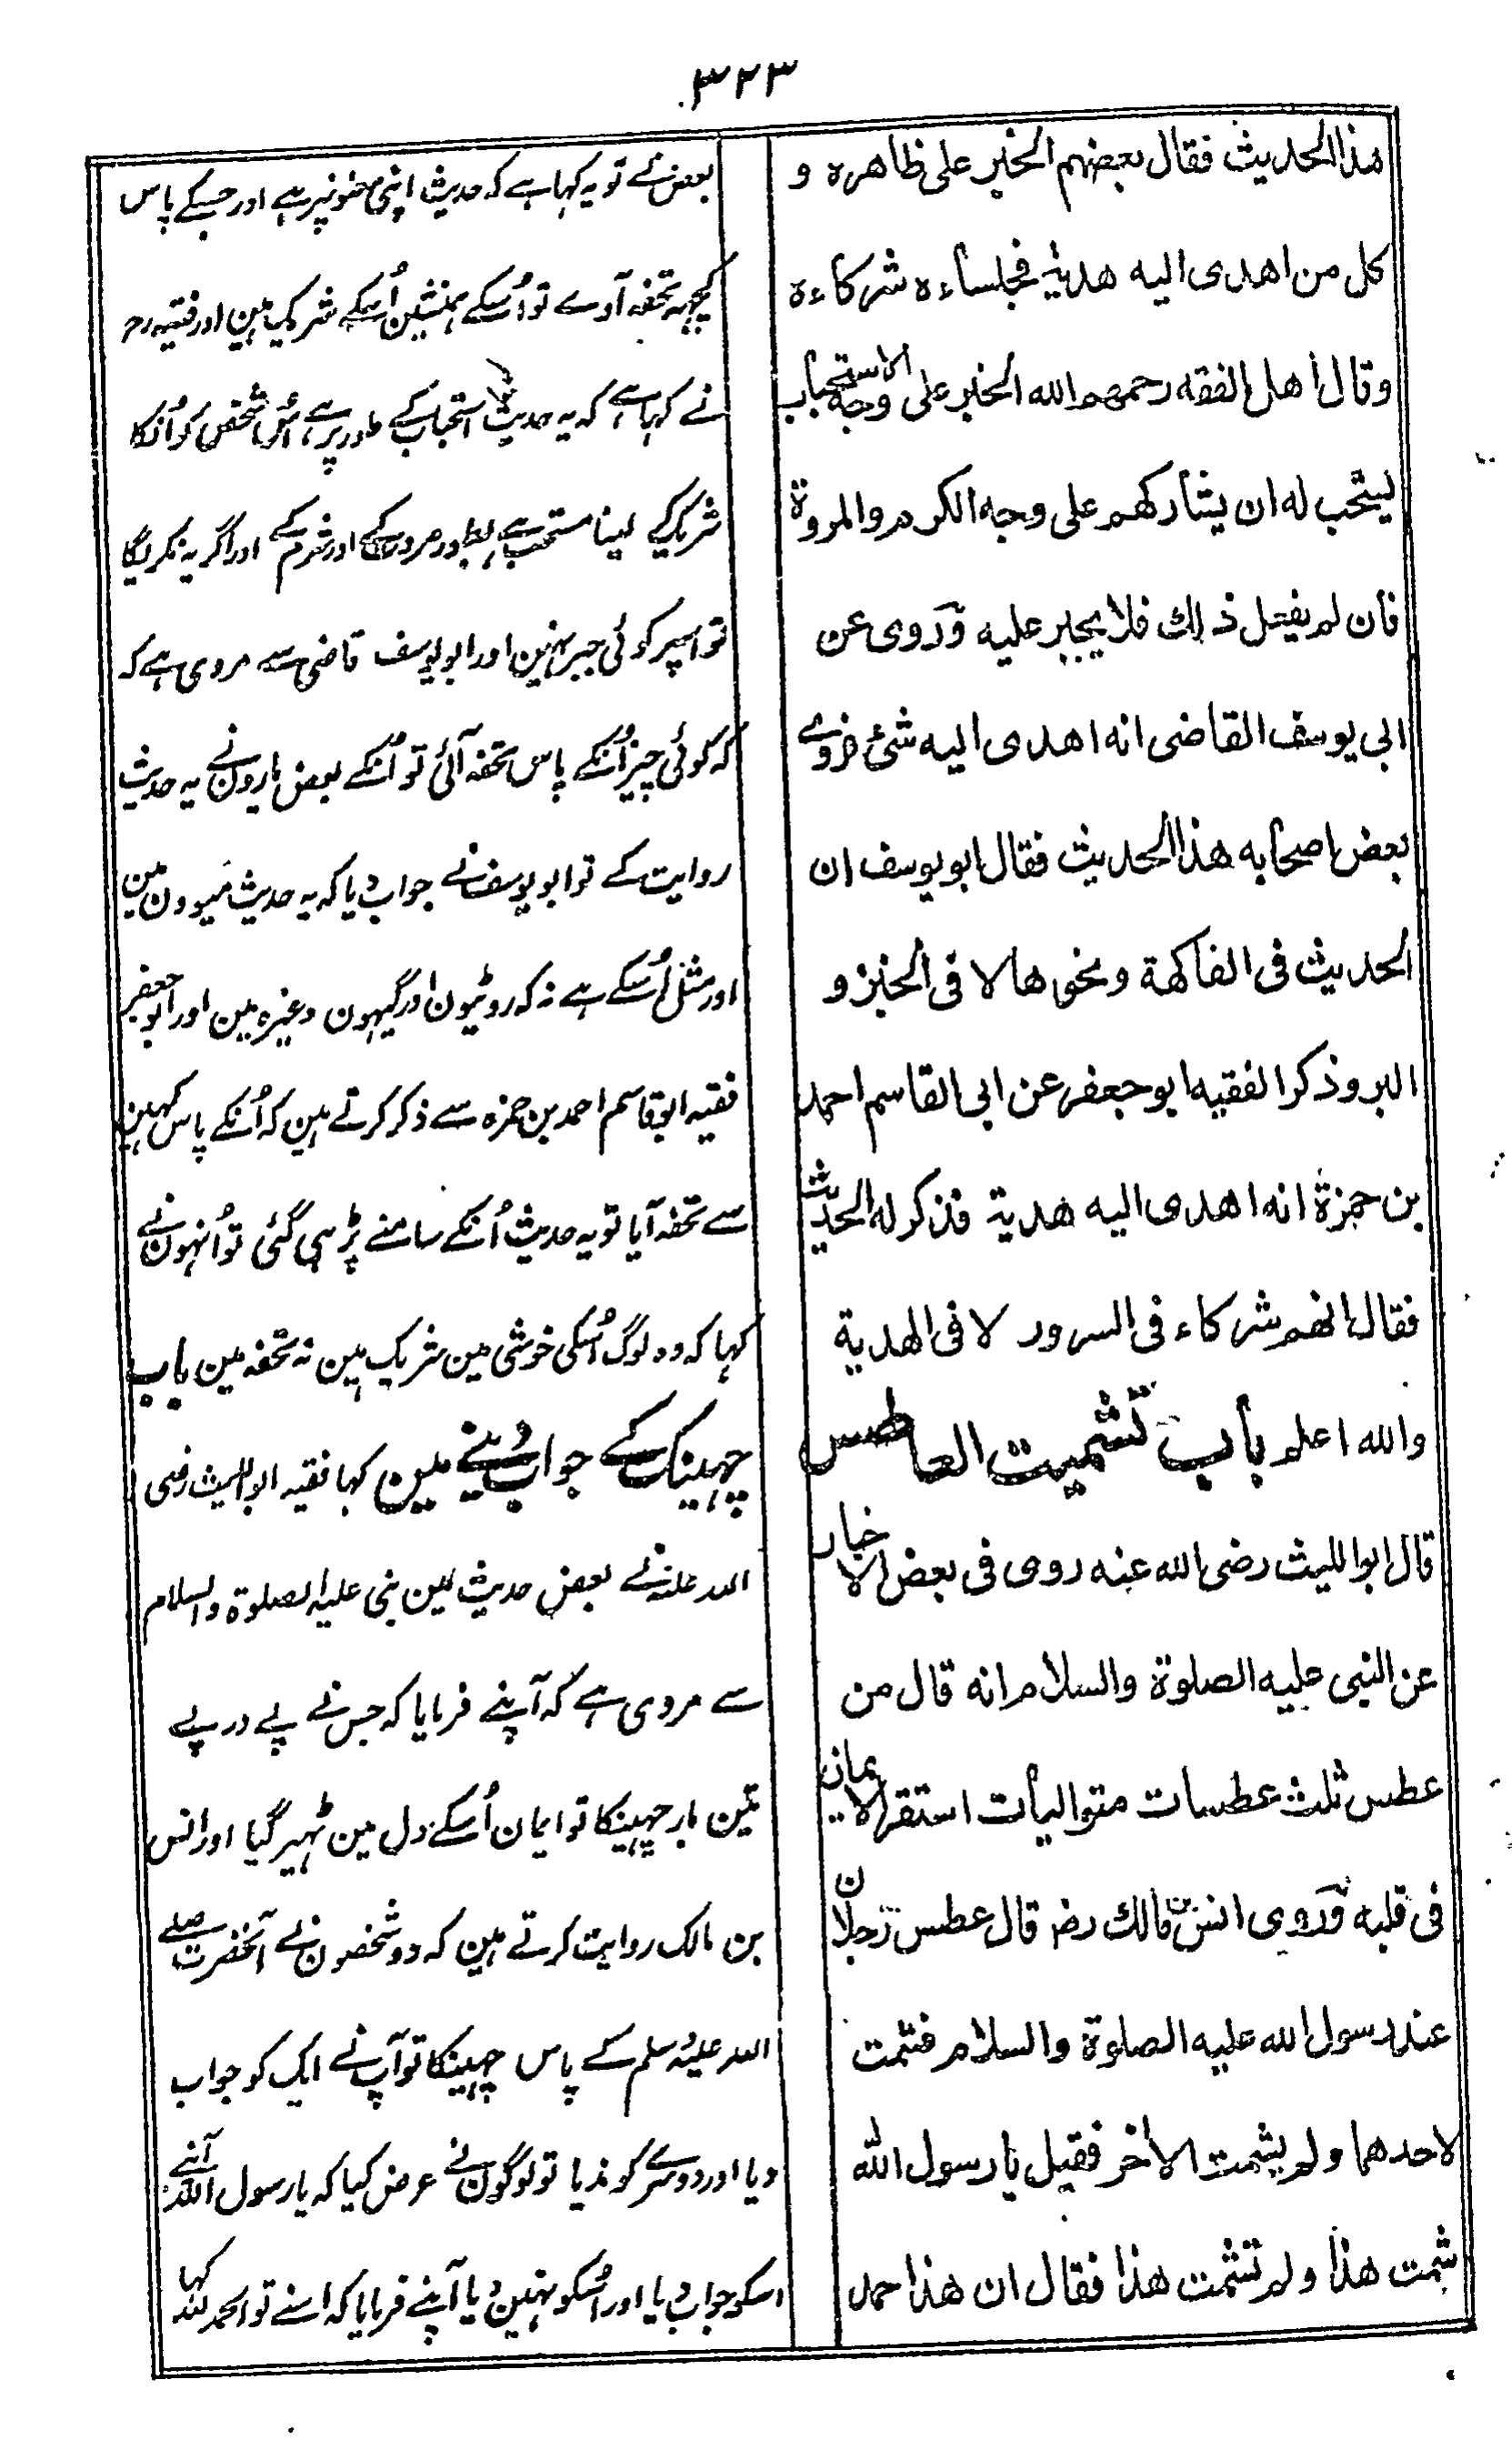 ٣٢٣
هذا الحديث فقال بعضهم الخبر على ظاهره و
كل من اهدى اليه هدية فجلساءه شركاءه
وقال اهل الفقه رحمهم الله الخبر على وجه الاستحباب
يستحب له ان يشاركهم على وجه الكرم والمروة
فان لم يفعل ذلك فلا يجبر عليه وروى عن
ابى يوسف القاضى انه اهدى اليه شئ فروى
بعض اصحابه هذا الحديث فقال ابو يوسف ان
الحديث فى الفاكهة ونحوها لا فى الخبز و
البر وذكر الفقيه ابو جعفر عن ابى القاسم احمد
بن حمزة انه اهدى اليه هدية فذكر له الحديث
فقال انهم شركاء فى السرور لا فى الهدية
والله اعلم باب تشميت العاطس
قال ابو الليث رضى الله عنه روى فى بعض الاخبار
عن النبى عليه الصلوة والسلام انه قال من
عطس ثلث عطسات متواليات استقر الايمان
فى قلبه وروى انس بن مالك رضہ قال عطس رجلان
عند رسول الله عليه الصلوة والسلام فشمت
لاحدهما ولم يشمت الاخر فقيل يا رسول الله
شمت هذا ولم تشمت هذا فقال ان هذا حمد
بعض نے تو یہ کہا ہے کہ حدیث اپنی معنونپر ہے اور جسکے پاس
کچہہ تحفہ آوے تو اُسکے ہمنشین اُسکے شریک ہین اور فقیہ رح
نے کہا ہے کہ یہ حدیث استحباب کے طور پر ہے، اس شخص کو اُنکا
شریک کر لینا مستحب ہے بطور مروت کے اور شرم کے اور اگر یہ نکریگا
تو اسپر کوئی جبر نہین اور ابو یوسف قاضی سے مروی ہے کہ
کہ کوئی چیز اُنکے پاس تحفہ آئی تو اُنکے بعض یارون نے یہ حدیث
روایت کے تو ابو یوسف نے جواب دیا کہ یہ حدیث میوون مین
اور مثل اُسکے ہے نہ کہ روٹیون اور گیہون وغیرہ مین اور ابو جعفر
فقیہ ابو قاسم احمد بن حمزہ سے ذکر کرتے ہین کہ اُنکے پاس کہین
سے تحفہ آیا تو یہ حدیث اُنکے سامنے پڑہی گئی تو اُنہون نے
کہا کہ وہ لوگ اُسکی خوشی مین شریک ہین نہ تحفہ مین باب
چہینک کے جواب دینے مین کہا فقیہ ابو اللیث رضی
اللہ عنہ نے بعض حدیث مین نبی علیہ الصلوۃ والسلام
سے مروی ہے کہ آپنے فرمایا کہ جس نے پے در پے
تین بار چہینکا تو ایمان اُسکے دل مین ٹہیر گیا اور انس
بن مالک روایت کرتے ہین کہ دو شخصون نے آنحضرت صلے
اللہ علیہ وسلم کے پاس چہینکا تو آپ نے ایک کو جواب
دیا اور دوسرے کو ندیا تو لوگون نے عرض کیا کہ یا رسول اللہ آپنے
اسکو جواب دیا اور اُسکو نہین دیا آپنے فرمایا کہ اسنے تو الحمد للہ کہا